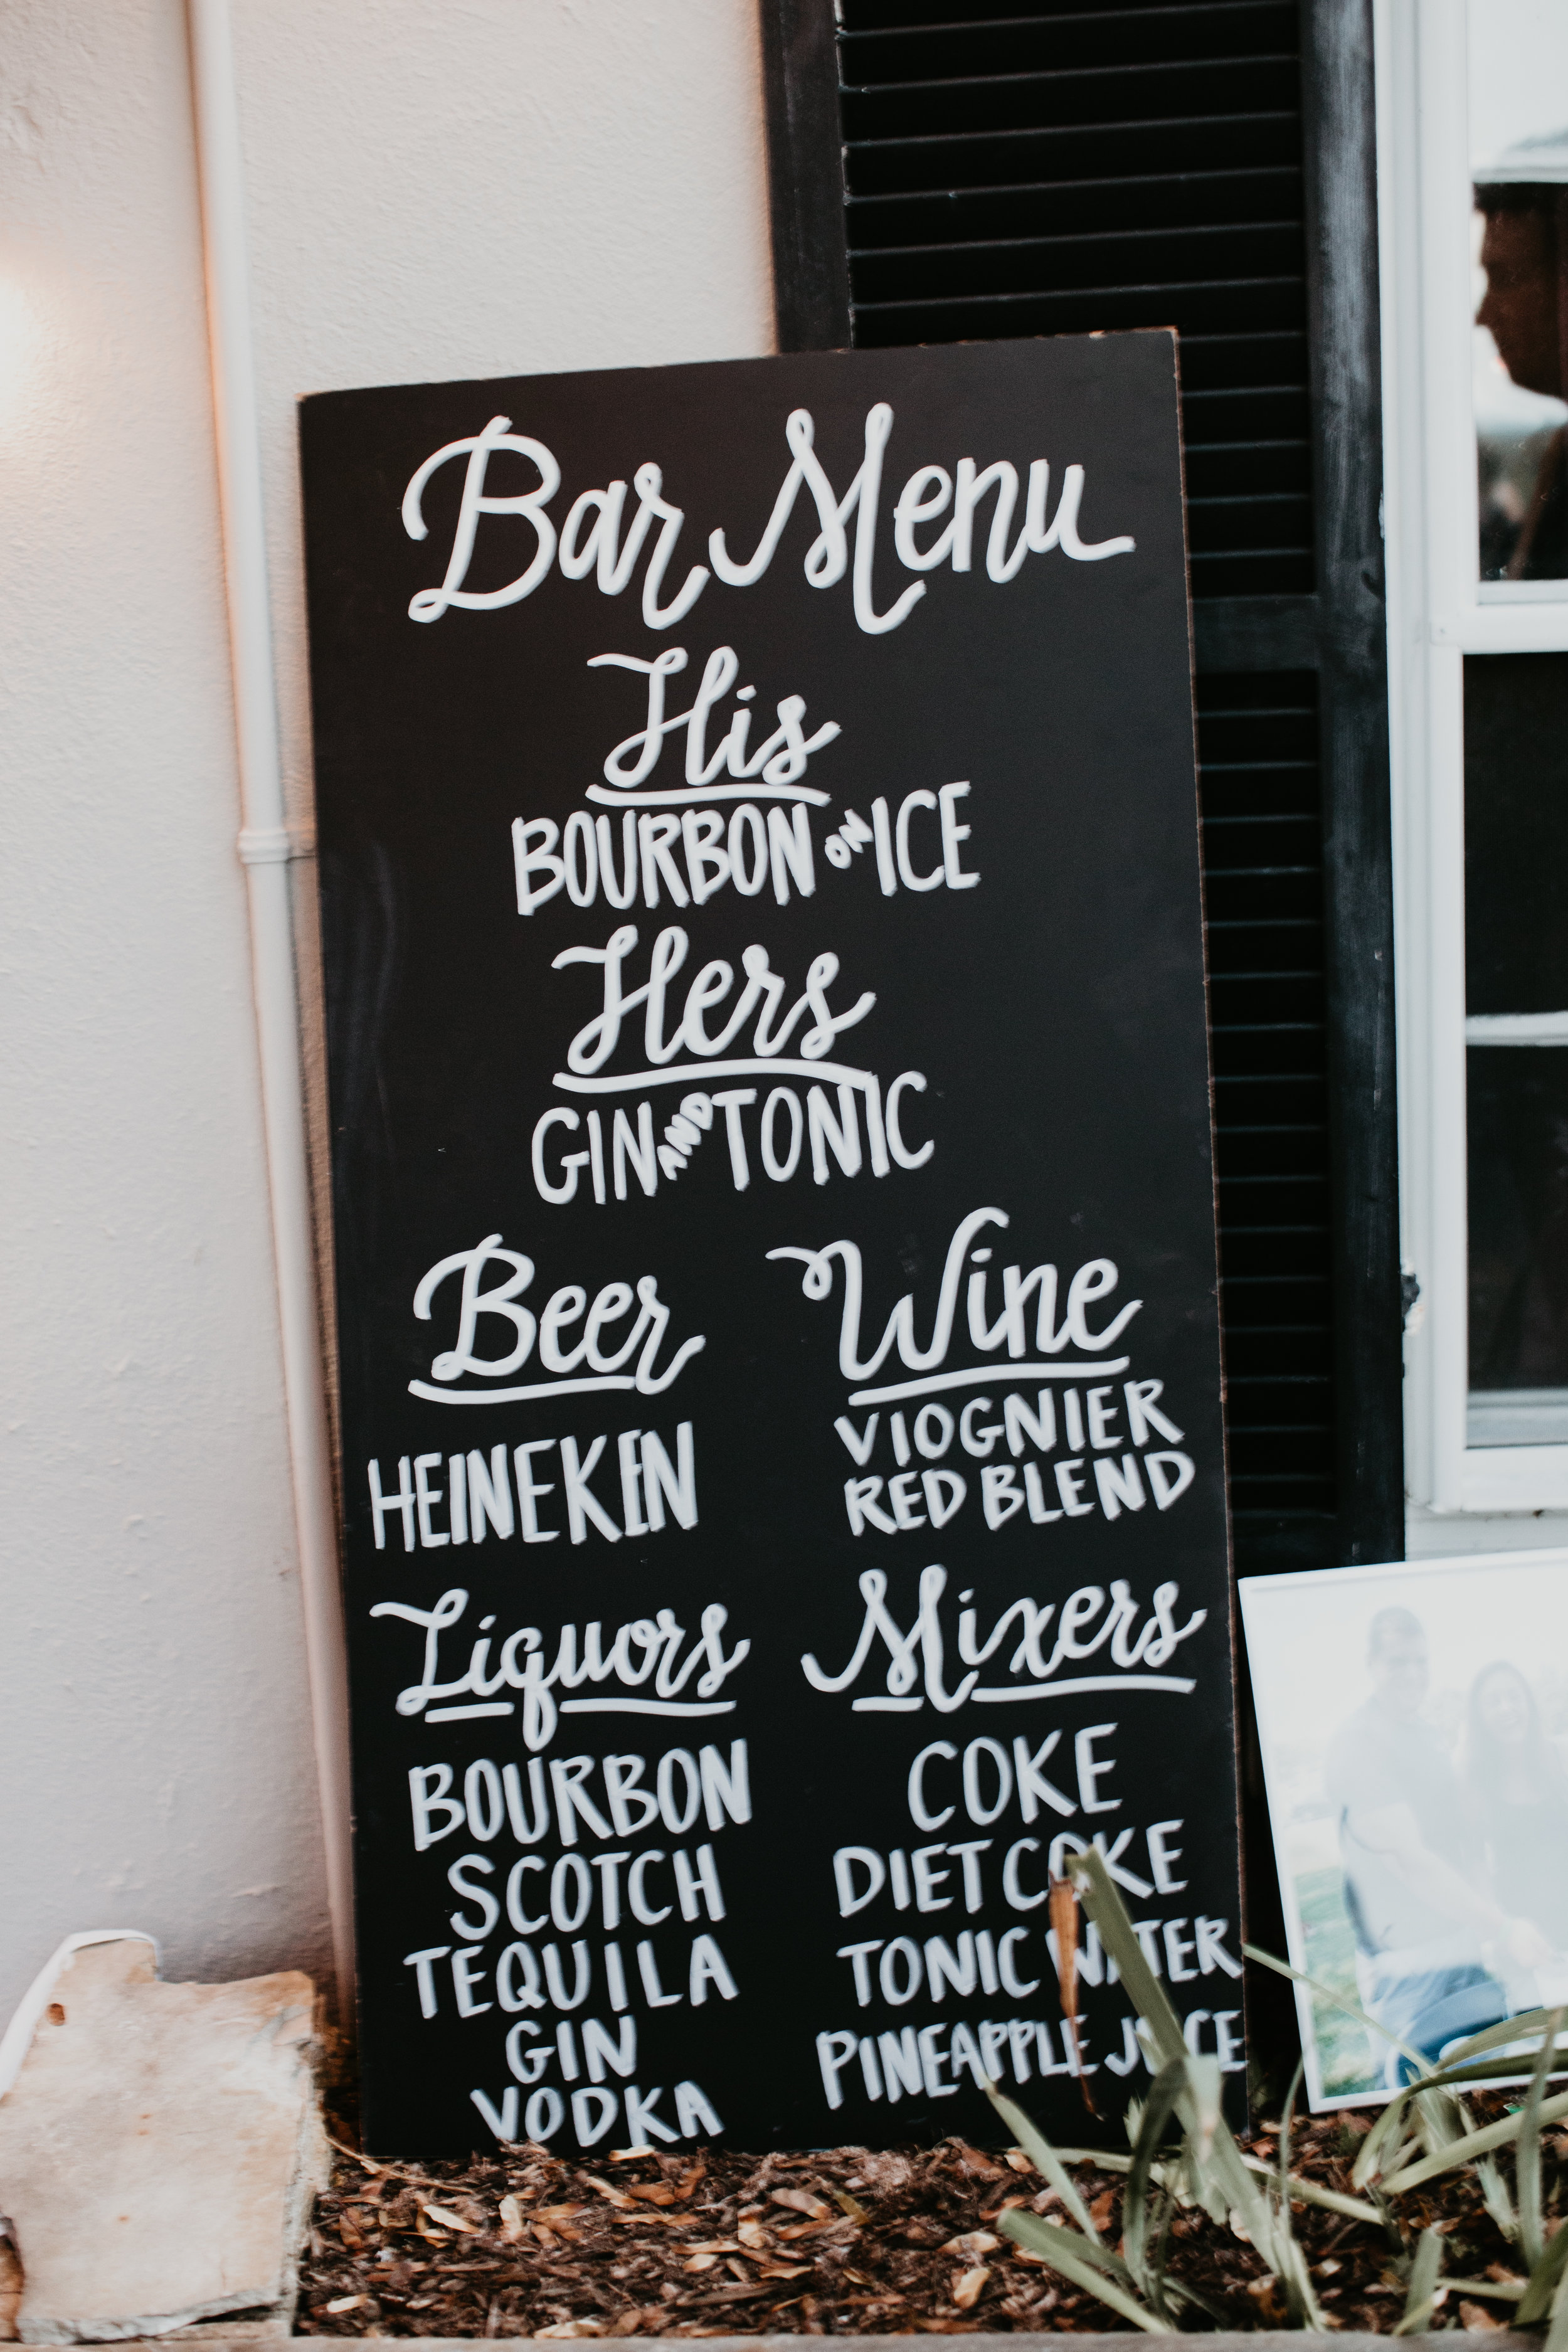 Bar Menu
His
BOURBON ON ICE
Hers
GIN AND TONIC
Beer
HEINEKEN
Wine
VIOGNIER
RED BLEND
Liquors
BOURBON
SCOTCH
TEQUILA
GIN
VODKA
Mixers
COKE
DIET COKE
TONIC WATER
PINEAPPLE JUICE